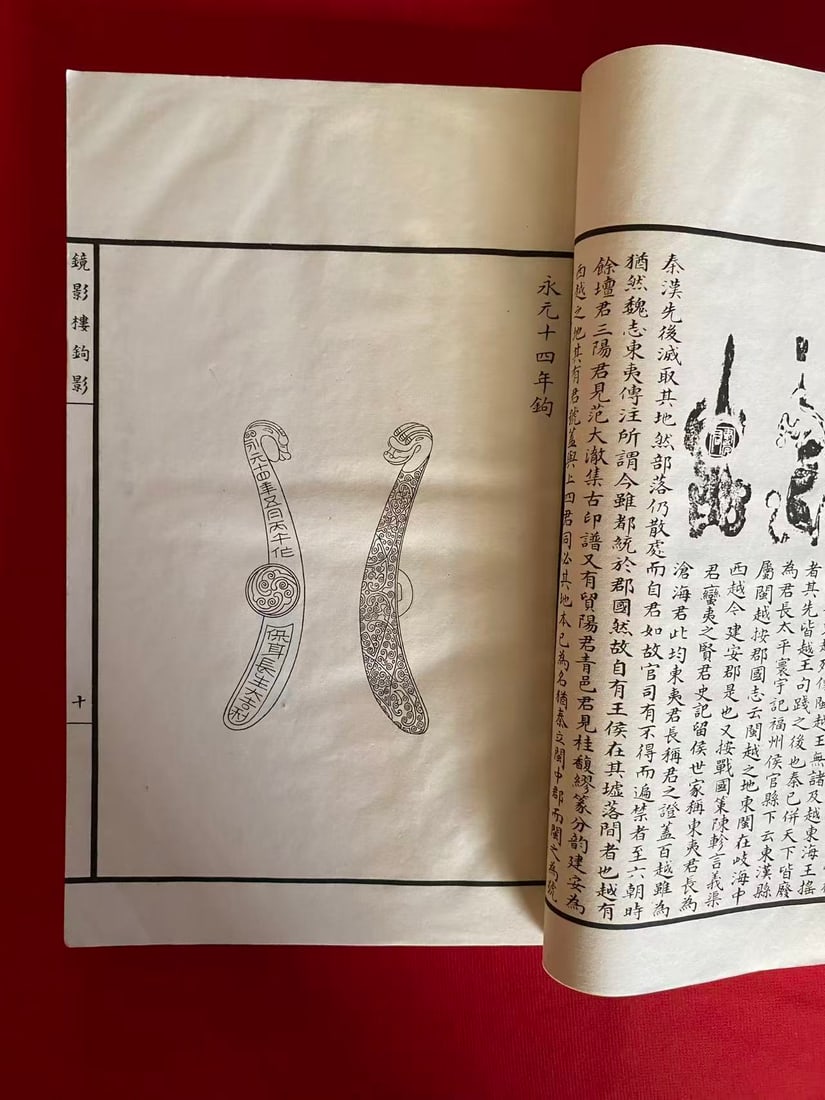 閩越王無諸及越東海王搖
者其先皆越王句踐之後也秦已併天下皆廢
為君長太平寰宇記福州侯官縣下云東漢縣
屬閩越按郡國志云閩越之地東閩在岐海中
西越今建安郡是也又按戰國策陳軫言義渠
君蠻夷之賢君史記留侯世家稱東夷君長為
滄海君此均東夷君長稱君之證蓋百越雖為
秦漢先後滅取其地然部落仍散處而自君如故官司有不得而遍禁者至六朝時
猶然魏志東夷傳注所謂今雖都統於郡國然故自有王侯在其墟落間者也越有
餘壇君三陽君見范大澈集古印譜又有貿陽君青邑君見桂馥繆篆分韵建安為
西越之地其有君號蓋與上四君同必其地本已為名猶秦立閩中郡而閩之為號
永元十四年鉤
永元十四年五月丙午作
長生大吉利
鏡影樓鉤影
十